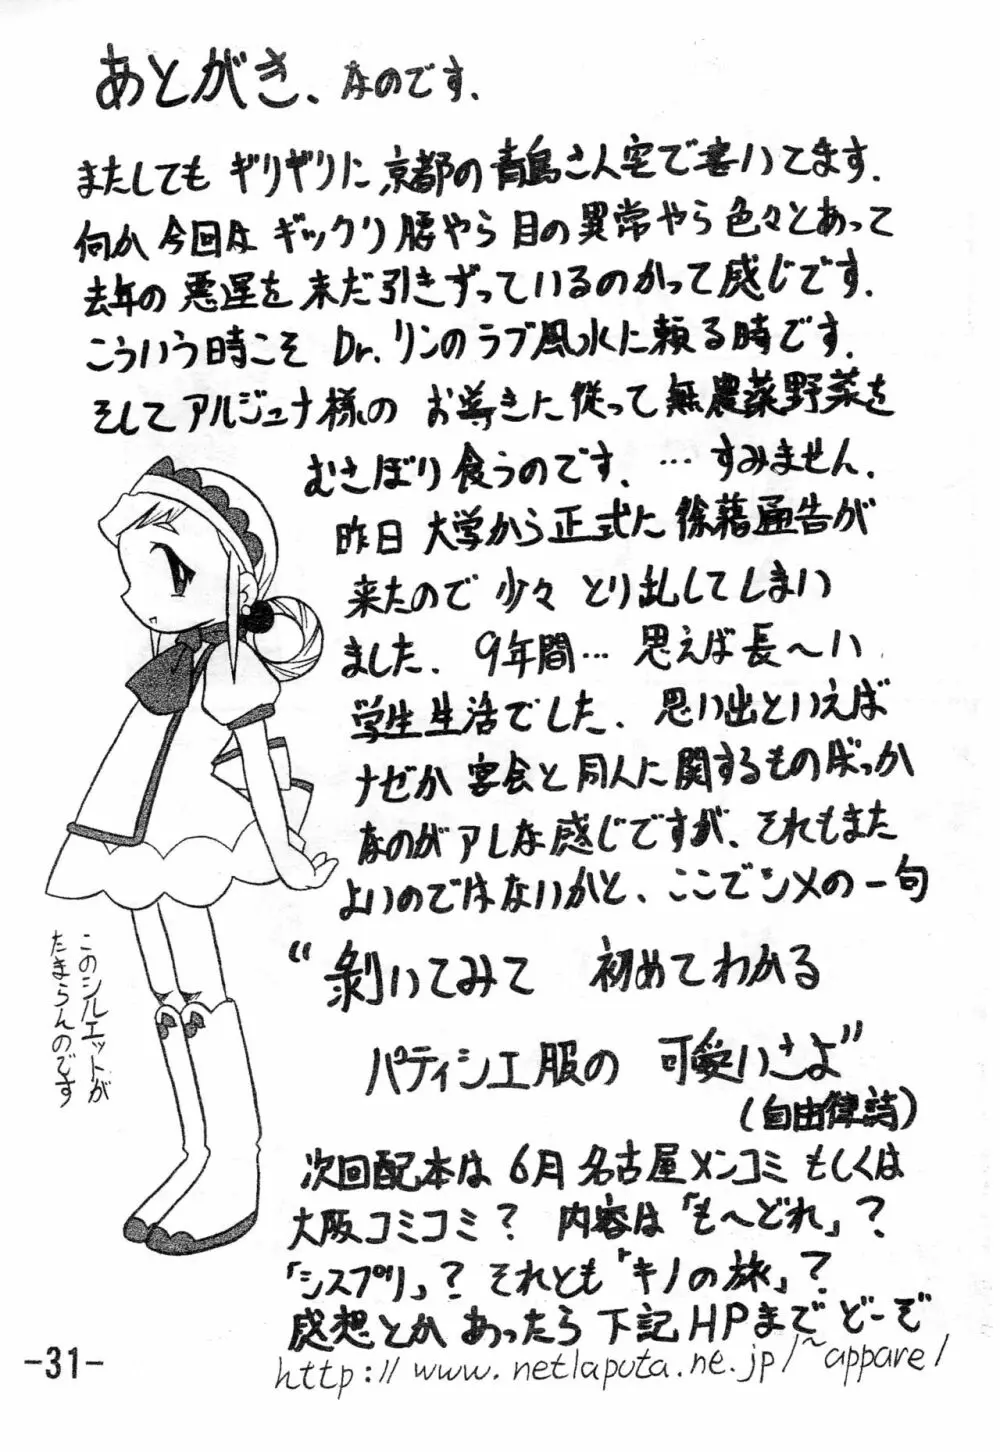 あとがき、なのです.
またしても ギリギリに京都の青島さん宅で書いてます.
何か今回は ギックリ腰やら目の異常やら色々とあって
去年の悪運を未だ引きずっているのかって感じです.
こういう時こそ Dr.リンのラブ風水に頼る時です.
そしてアルジュナ様の お導きに従って無農薬野菜を
むさぼり食うのです. … すみません.
昨日 大学から正式に 除籍通告が
来たので 少々 とり乱してしまい
ました. 9年間… 思えば長〜い
学生生活でした. 思い出といえば
ナゼか 宴会と同人に関するものばっか
なのがアレな感じですが、それもまた
よいのではないかと、ここでシメの一句
“剝いてみて 初めてわかる
パティシエ服の 可愛いさよ”
(自由律詩)
このシルエットが
たまらんのです
次回配本は 6月 名古屋メンコミ もしくは
大阪コミコミ? 内容は「も〜どれ」?
「シスプリ」? それとも「キノの旅」?
感想とか あったら 下記HPまで どーぞ
http://www.netlaputa.ne.jp/~appare/
-31-